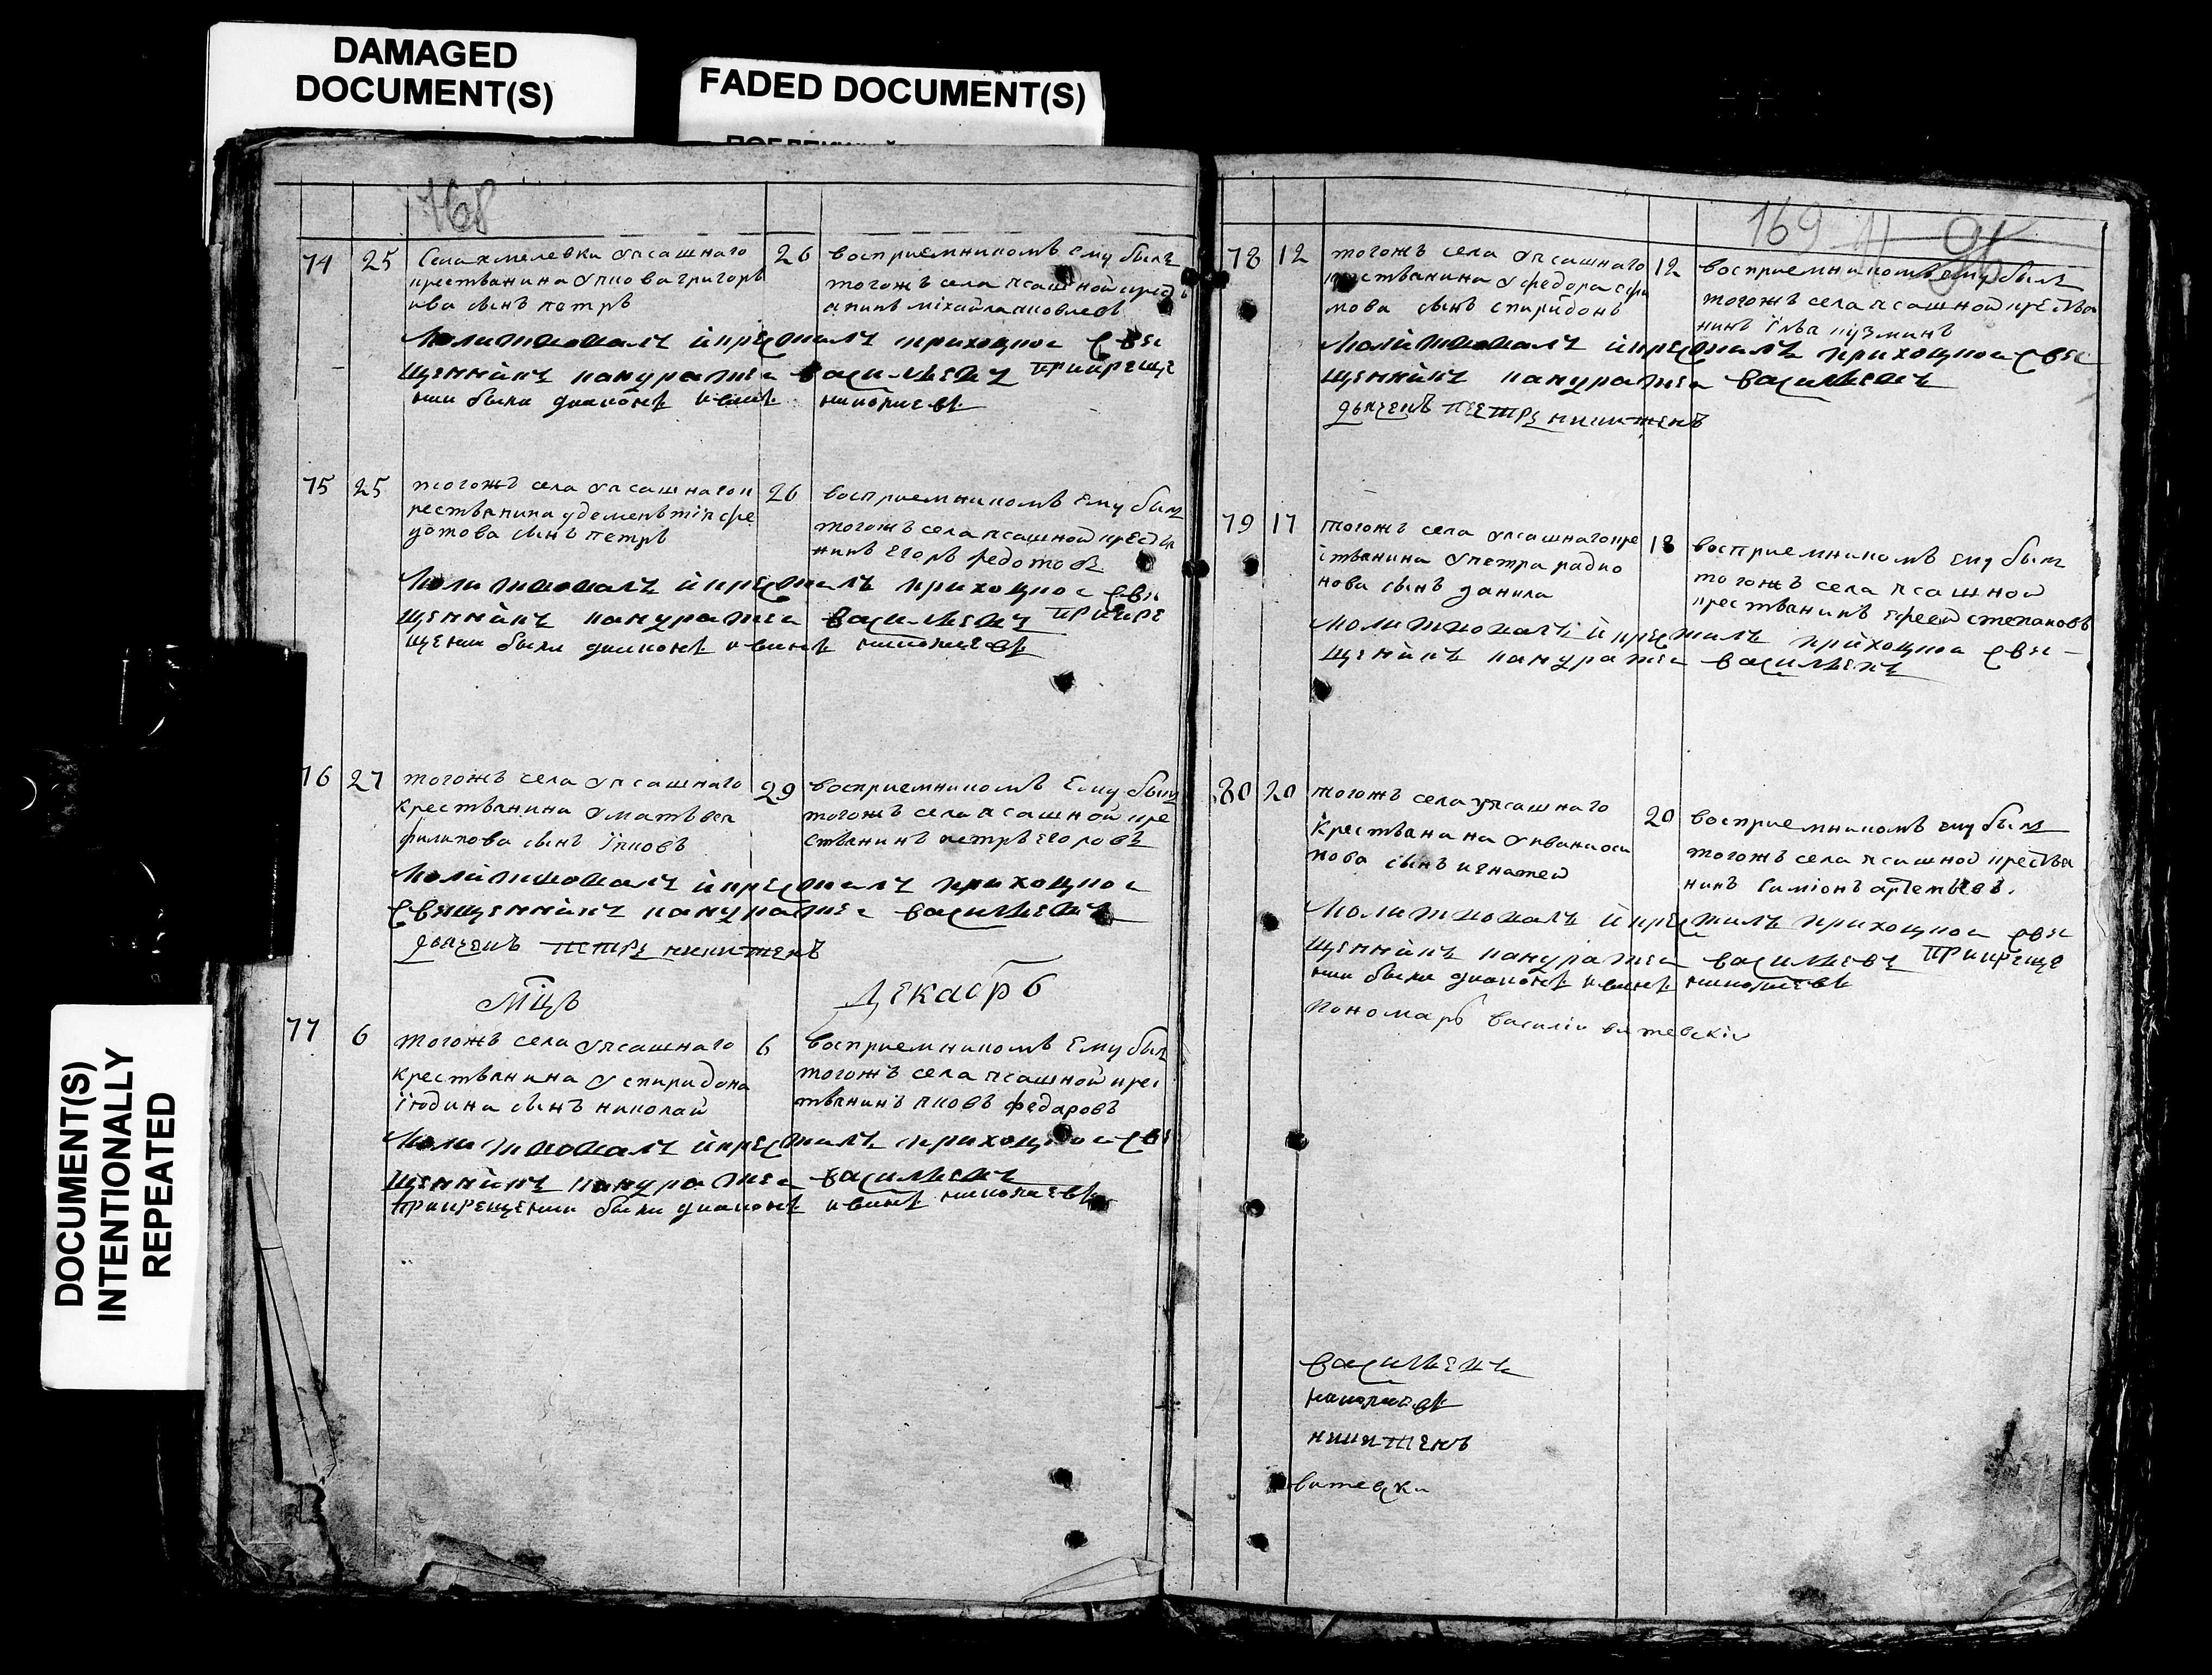 DAMAGED
DOCUMENT(S)
FADED DOCUMENT(S)
DOCUMENT(S)
INTENTIONALLY
REPEATED
168
74 25 Села хмелевки упсашнаго
крестьянина якова григорь
ева сынъ петръ
26 восприемникомъ ему былъ
тогожъ села псашной крест
янинъ міхайла яковлевъ
Молитвовалъ и крестилъ приходное свя
щенникъ кандратеи васильевъ при креще
нии были диаконъ иванъ николаевъ
75 25 тогожъ села упсашнагок
рестьянина у дементия фе
дотова сынъ петръ
26 восприемникомъ ему былъ
тогожъ села псашной крестья
нинъ егоръ федотовъ
Молитвовалъ и крестилъ приходное свя
щенникъ кандратеи васильевъ при кре
щении были диаконъ иванъ николаевъ
76 27 тогожъ села упсашнаго
крестьянина у матьвея
филипова сынъ їаковъ
29 восприемникомъ ему былъ
тогожъ села псашной кре
стьянинъ петръ егоровъ
Молитвовалъ и крестилъ приходное
священникъ кандратеи васильевъ
дьячекъ петръ никитенъ
Мцъ Декабрь
77 6 тогожъ села упсашнаго
крестьянина у спиридона
їюдина сынъ николай
6 восприемникомъ ему былъ
тогожъ села псашной крес
тьянинъ яковъ федаровъ
Молитвовалъ и крестилъ приходное свя
щенникъ кандратеи васильевъ
при крещении были диаконъ иванъ николаевъ
169
78 12 тогожъ села упсашнаго
крестьянина у федора ефи
мова сынъ спиридонъ
12 восприемникомъ ему былъ
тогожъ села псашной крестья
нинъ їлья кузминъ
Молитвовалъ и крестилъ приходное свя
щенникъ кандратеи васильевъ
дьячекъ петръ никитенъ
79 17 тогожъ села упсашнаго кре
стьянина у петра радио
нова сынъ данила
18 восприемникомъ ему былъ
тогожъ села псашной
крестьянинъ ефрем степановъ
Молитвовалъ и крестилъ приходное свя
щеникъ кандратеи васильевъ
80 20 тогожъ села упсашнаго
крестьянина у ивана оси
пова сынъ игнатей
20 восприемникомъ ему былъ
тогожъ села псашной крестья
нинъ Симіонъ артемьевъ.
Молитвовалъ и крестилъ приходное свя
щенникъ кандратеи васильевъ при креще
нии были диаконъ иванъ николаевъ
пономарь василіи витевскіи
васильевъ
николаевъ
никитенъ
витевски